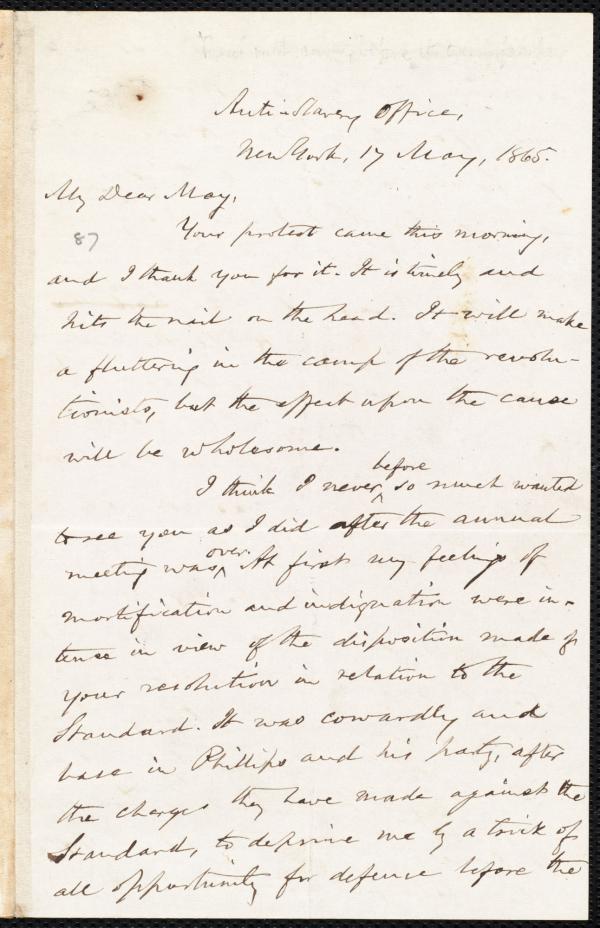 Anti-slavery Office,
New York, 17 May, 1865.
My Dear May,
87
Your protest came this morning,
and I thank you for it. It is timely and
hits the nail on the head. It will make
a fluttering in the camp of the revolu-
tionists, but the effect upon the cause
will be wholesome.
before
I think I never ^ so much wanted
to see you as I did after the annual
over.
meeting was ^ At first my feelings of
mortification and indignation were in-
tense in view of the disposition made of
your resolution in relation to the
Standard. It was cowardly and
base in Phillips and his party, after
the charges they have made against the
Standard, to deprive me by a trick of
all opportunity for defence before the